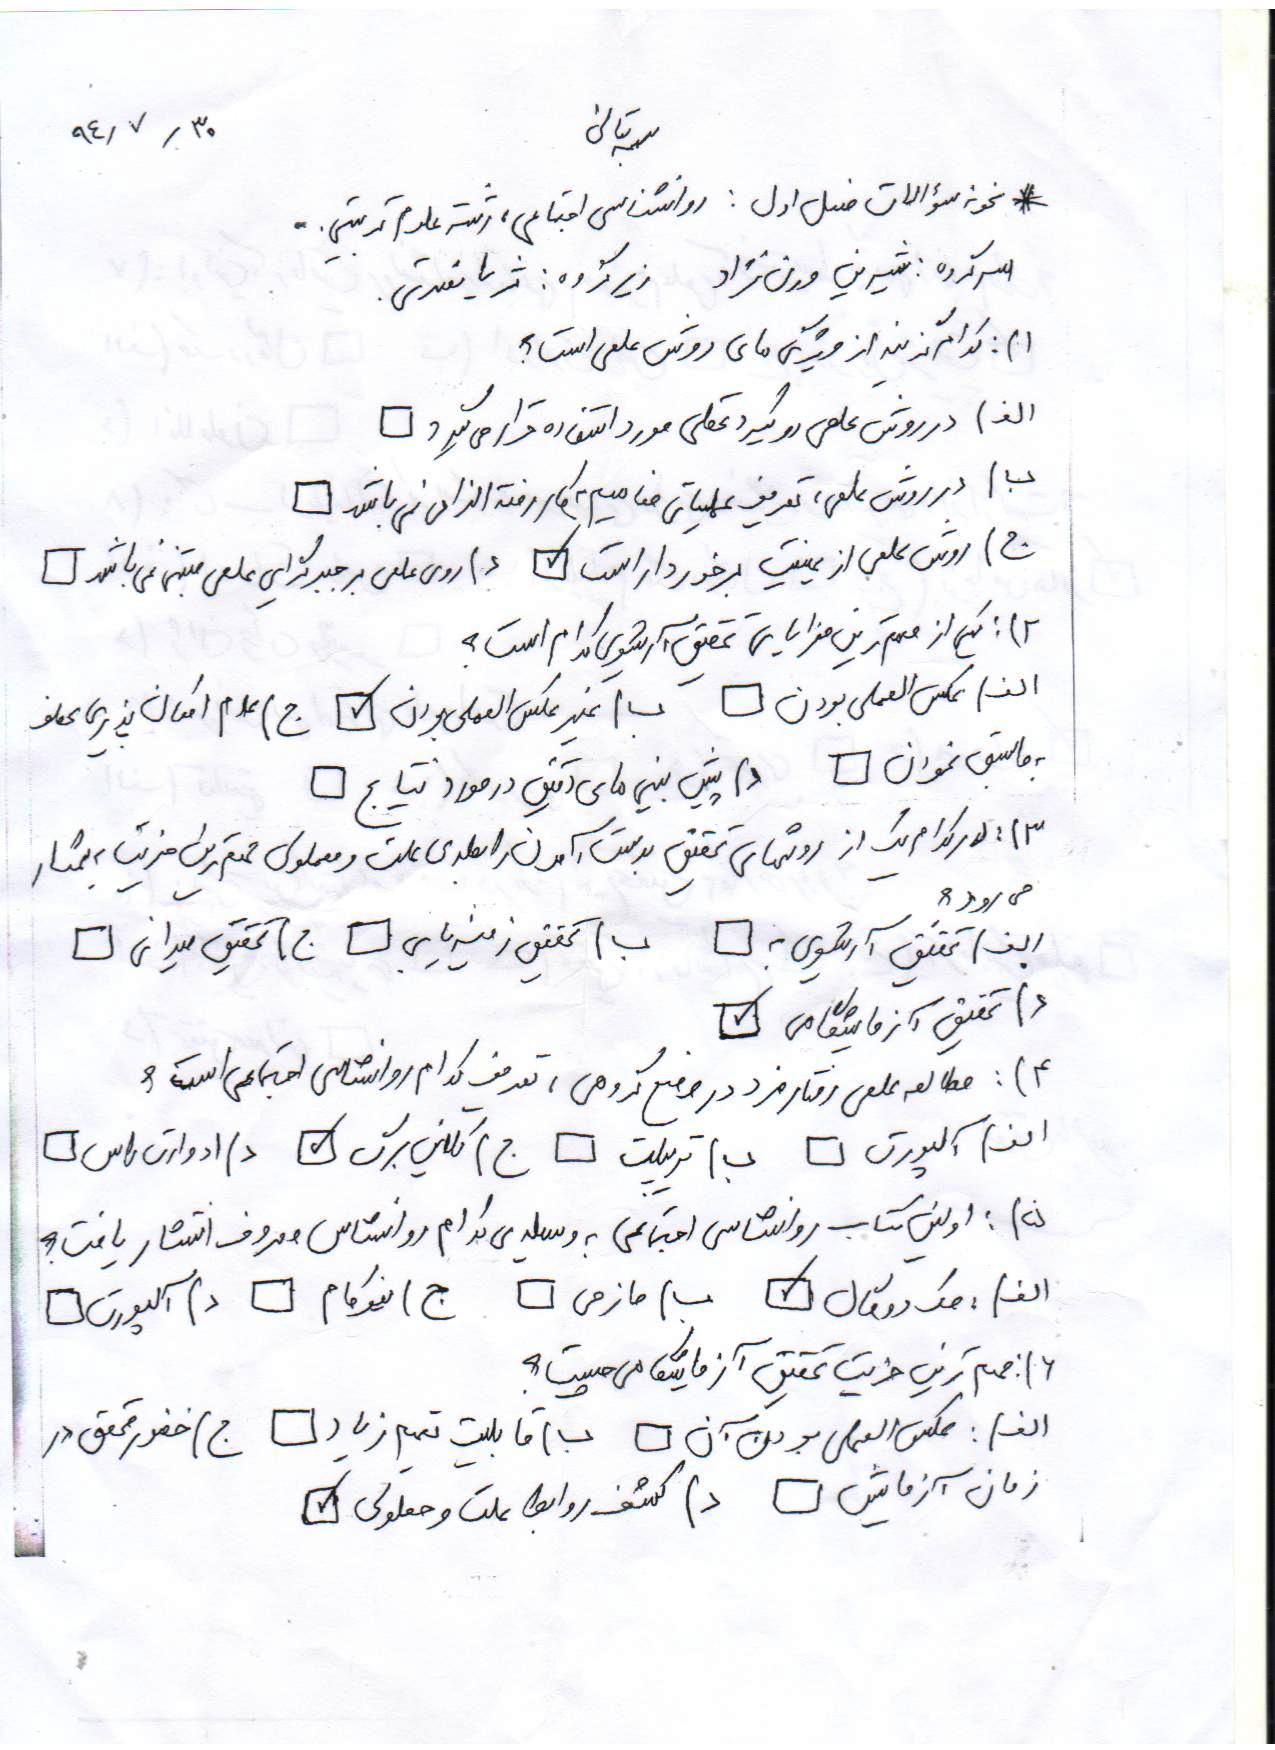 بسمه تعالی
۹٤/۷/۳۰
* نمونه سؤالات فصل اول : روانشناسی اجتماعی، رشته علوم تربیتی.
سرگروه : شیرین ورن نژاد زیر گروه : ثریا نعمتی.
۱) : کدام گزینه از ویژگی های روش علمی است؟
الف) در روش علمی رویکرد عقلی مورد استفاده قرار می گیرد □
ب) در روش علمی، تعریف عملیاتی مفاهیم به کار رفته الزامی نمی باشد □
ج) روش علمی از عینیت برخوردار است ☑ د) روی علمی بر جبر گرایی علمی مبتنی نمی باشد □
۲) : یکی از مهم ترین مزایای تحقیق آرشیوی کدام است؟
الف) عکس العملی بودن □ ب) غیر عکس العملی بودن ☑ ج) عدم امکان پذیری عطف
به ماسبق نمودن □ د) پیش بینی های دقیق در مورد نتایج □
۳) : در کدام یک از روشهای تحقیق بدست آمدن رابطه ی علت و معلولی مهم ترین مزیت به شمار
می رود؟
الف) تحقیق آرشیوی □ ب) زمینه یابی □ ج) تحقیق میدانی □
د) تحقیق آزمایشگاهی ☑
۴) : مطالعه علمی رفتار فرد در موضع گروهی، تعریف کدام روانشناس اجتماعی است؟
الف) آلپورت □ ب) تریپلت □ ج) کلاین برگ ☑ د) ادوارد راس □
۵) : اولین کتاب روانشناسی اجتماعی به وسیله ی کدام روانشناس معروف انتشار یافت؟
الف) : مک دوگال ☑ ب) مازمی □ ج) نیوکام □ د) آلپورت □
۶) : مهم ترین مزیت تحقیق آزمایشگاهی چیست؟
الف) : عکس العملی بودن آن □ ب) قابلیت تعمیم زیاد □ ج) حضور محقق در
زمان آزمایش □ د) کشف روابط علت و معلولی ☑